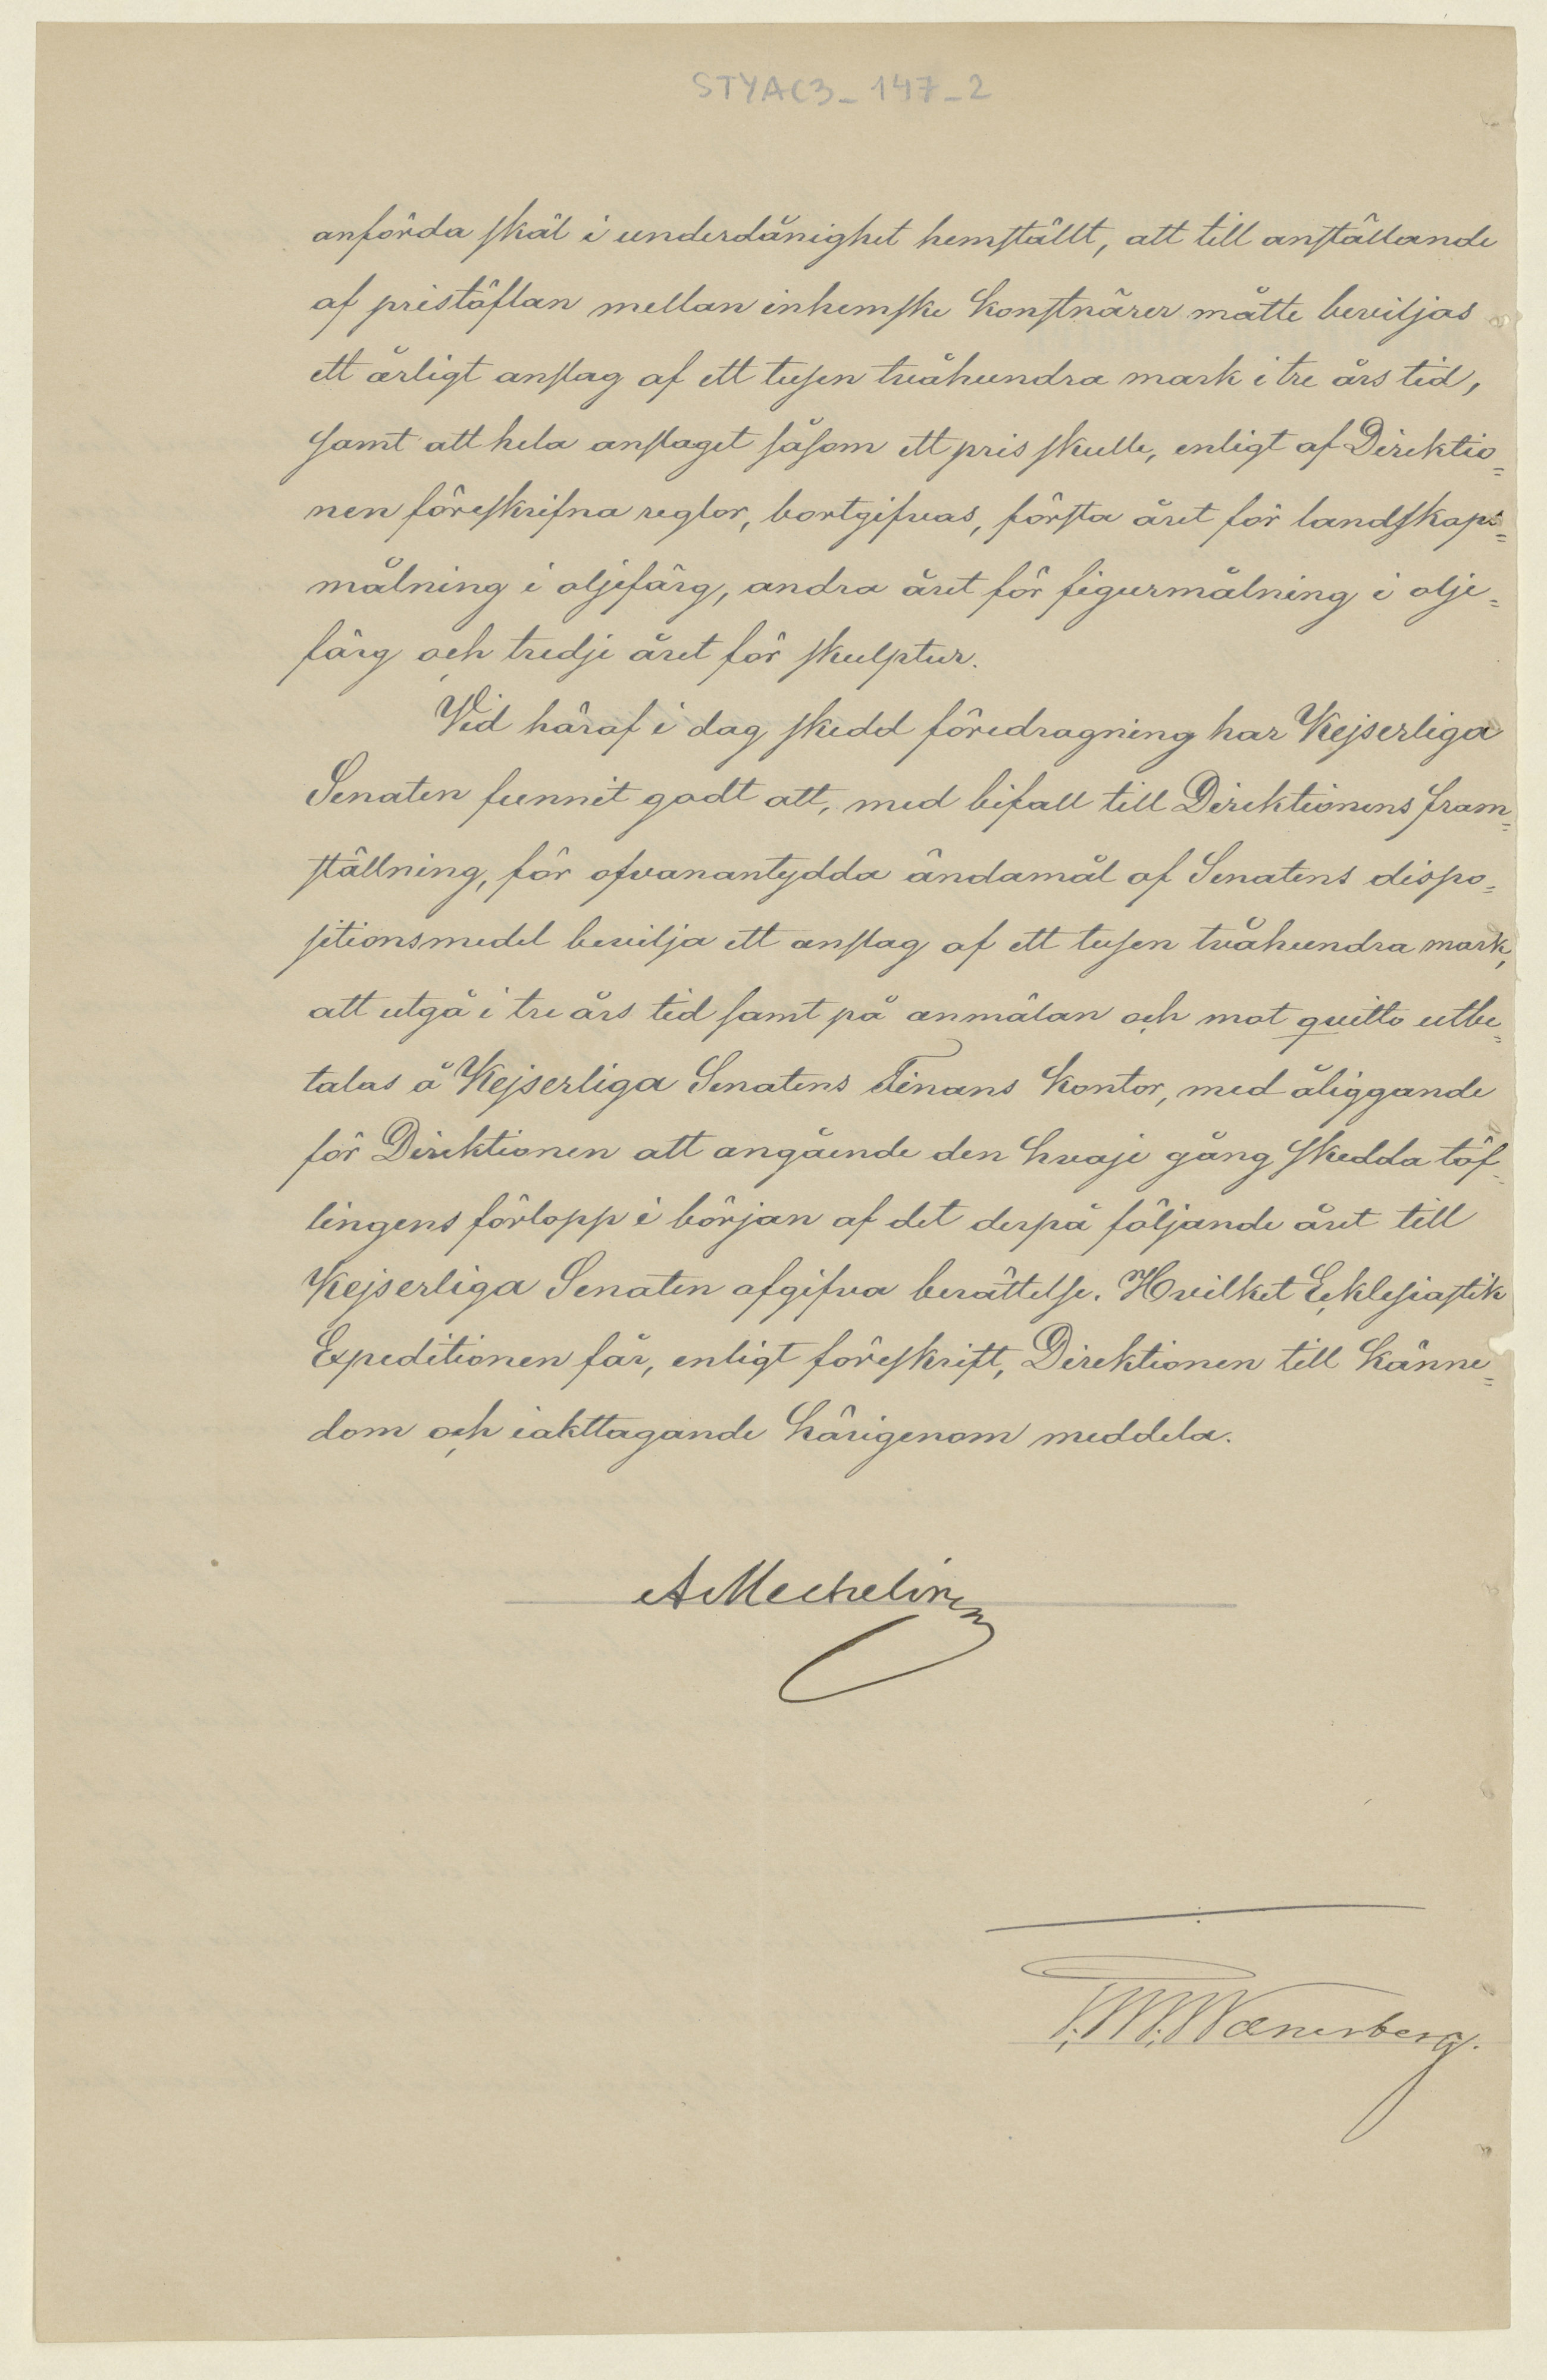 STYAC3_147_2
anförda skäl i underdånighet hemställt, att till anställande
af pristäflan mellan inhemske konstnärer måtte beviljas
ett årligt anslag af ett tusen tvåhundra mark i tre års tid,
samt att hela anslaget såsom ett pris skulle, enligt af Direktio=
nen föreskrifna reglor, bortgifvas, första året för landskaps=
målning i oljefärg, andra året för figurmålning i olje=
färg och tredje året för skulptur.
Vid häraf i dag skedd föredragning har Kejserliga
Senaten funnit godt att, med bifall till Direktionens fram=
ställning, för ofvanantydda ändamål af Senatens dispo=
sitionsmedel bevilja ett anslag af ett tusen tvåhundra mark,
att utgå i tre års tid samt på anmälan och mot qvitto utbe=
talas å Kejserliga Senatens Finans kontor, med åliggande
för Direktionen att angående den hvarje gång skedda täf=
lingens förlopp i början af det derpå följande året till
Kejserliga Senaten afgifva berättelse. Hvilket Ecklesiastik
Expeditionen får, enligt föreskrift, Direktionen till känne=
dom och iakttagande härigenom meddela.
A Mechelin
V. M. Wænerberg.